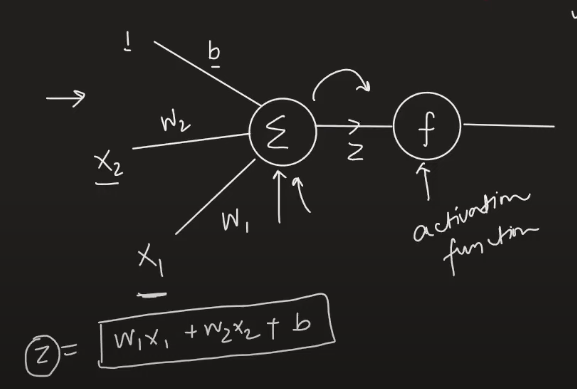 1
b
w₂
x₂
Σ
z
f
w₁
x₁
activation
function
z = w₁x₁ + w₂x₂ + b